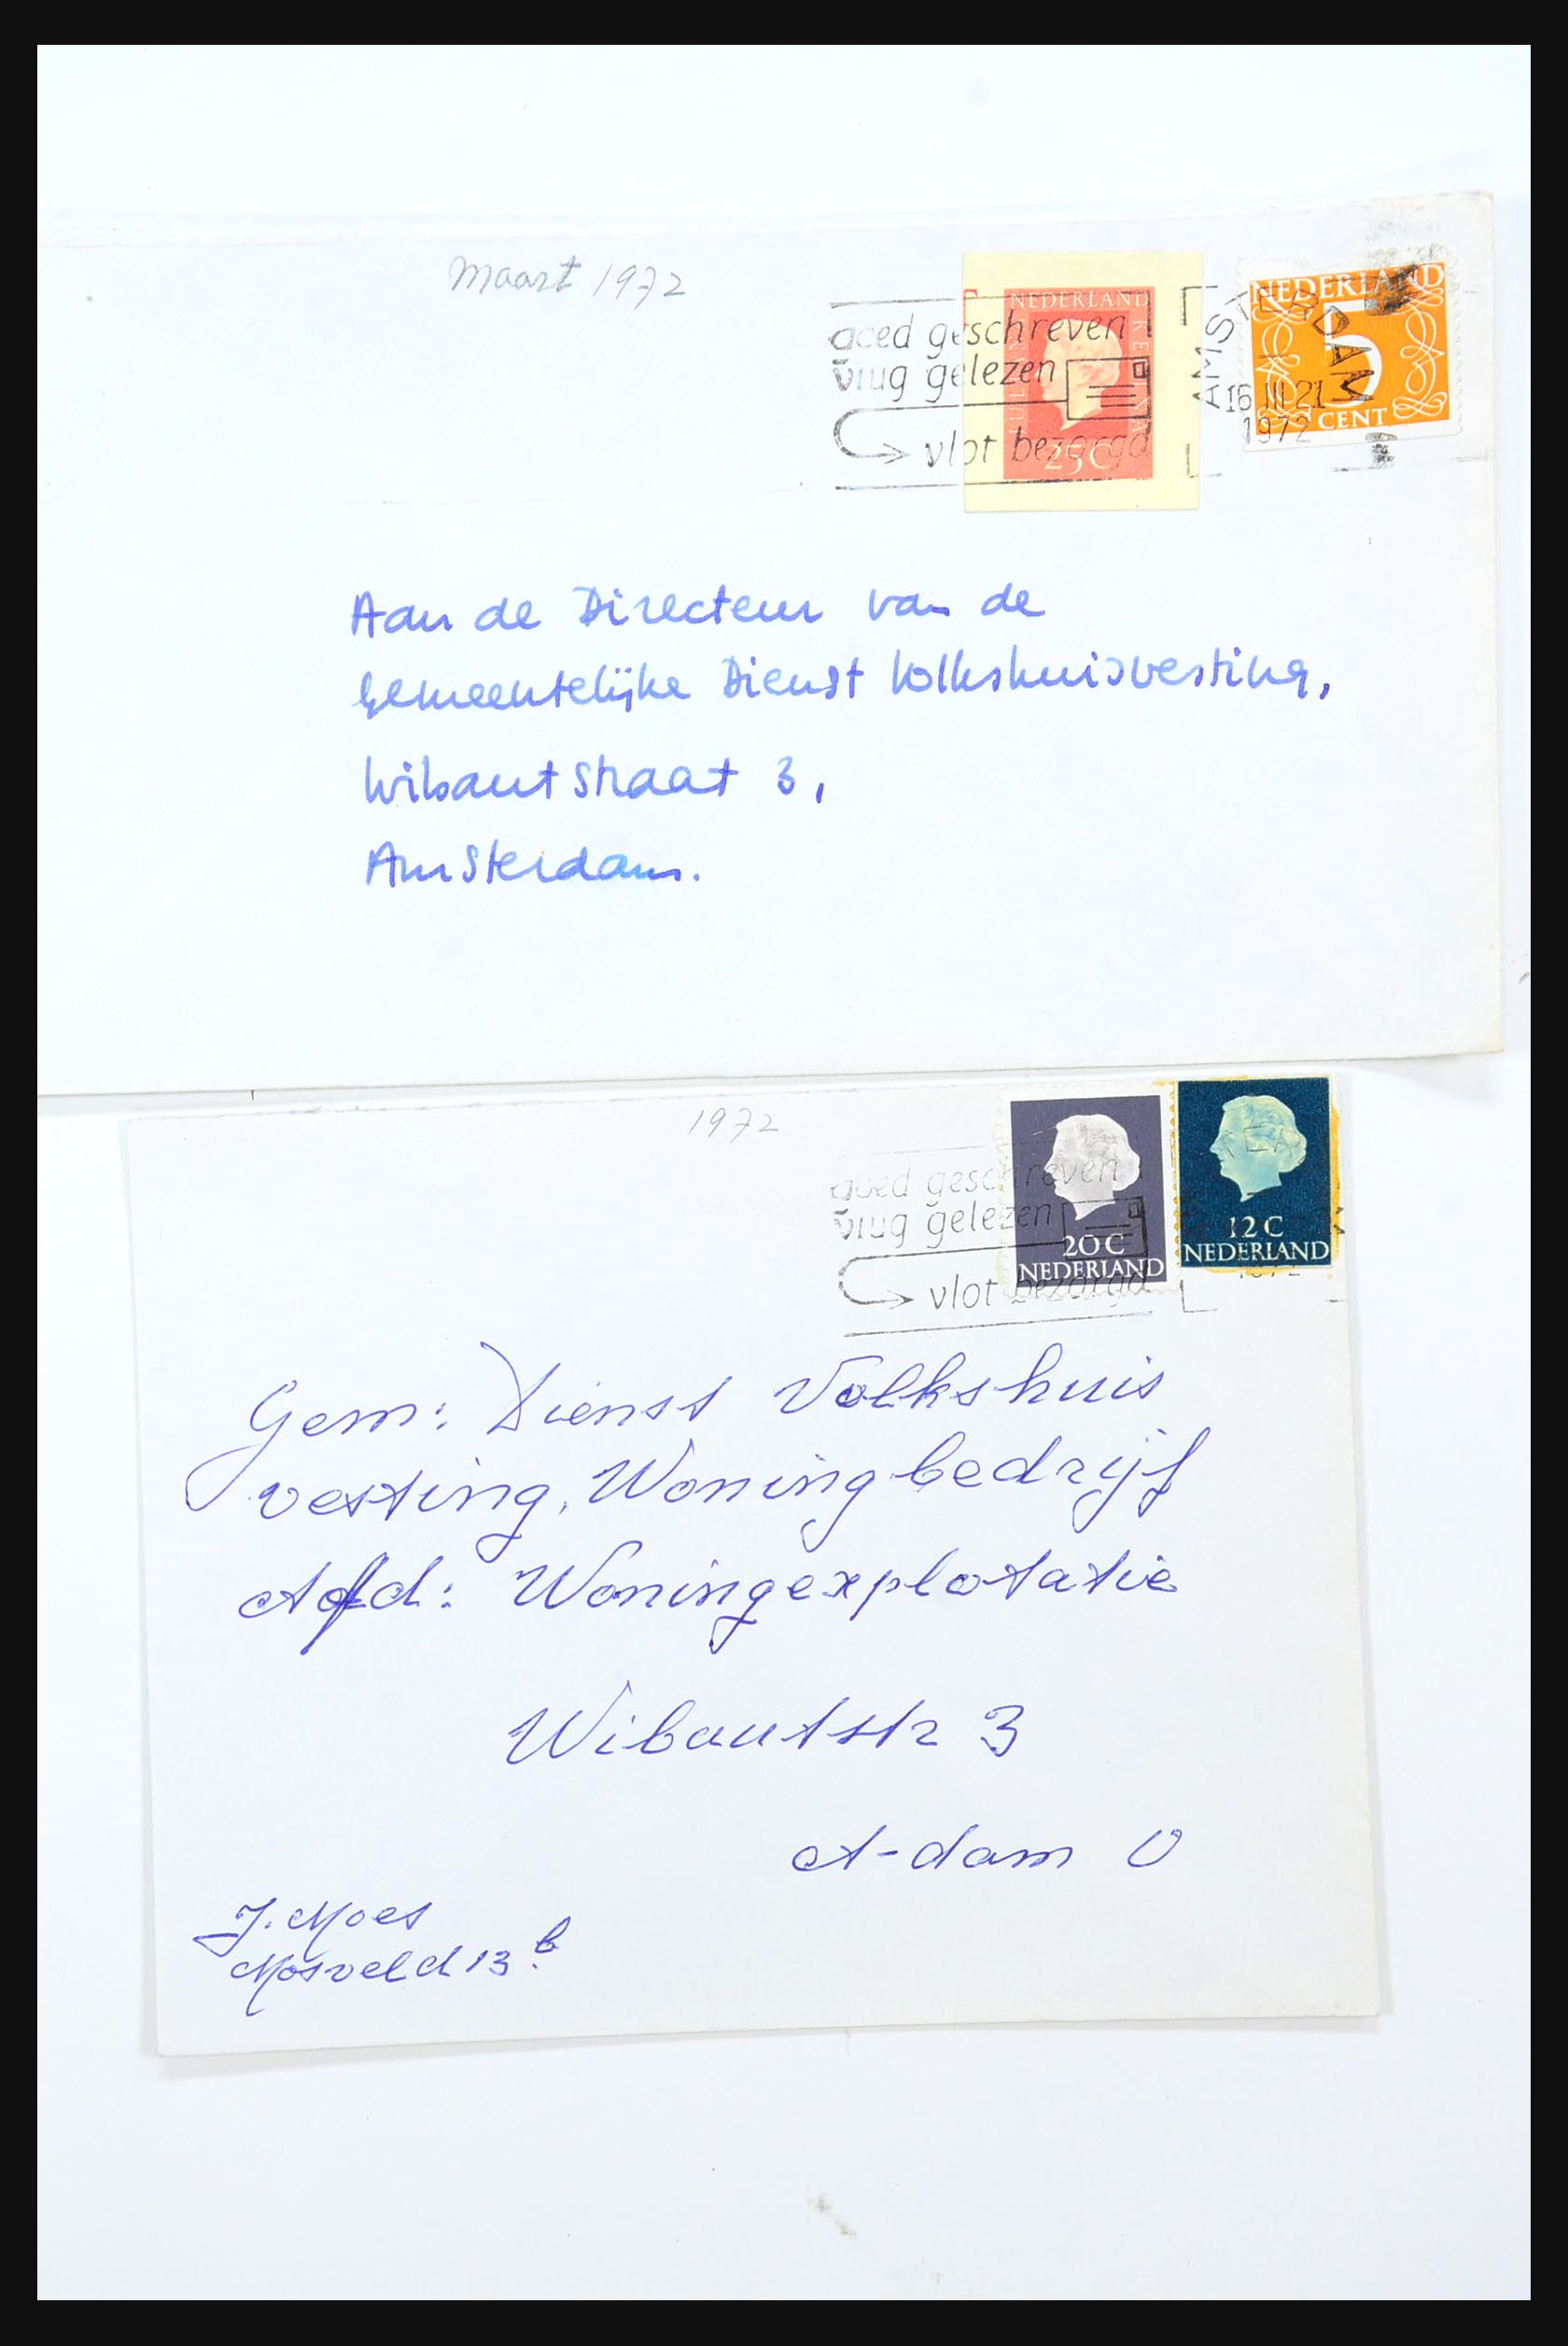 Maart 1972
goed geschreven
vlug gelezen
vlot bezorgd
NEDERLAND
25C
AMSTERDAM
16 III 21
1972
NEDERLAND
5
CENT
Aan de Directeur van de
Gemeentelijke Dienst Volkshuisvesting,
Wibautstraat 3,
Amsterdam.
1972
goed geschreven
vlug gelezen
vlot bezorgd
20 C
NEDERLAND
12 C
NEDERLAND
1972
Gem: Dienst Volkshuis
vesting, Woningbedrijf
Afd: Woningexplotatie
Wibautstr 3
A-dam O
J. Moes
Mosveld 13 b